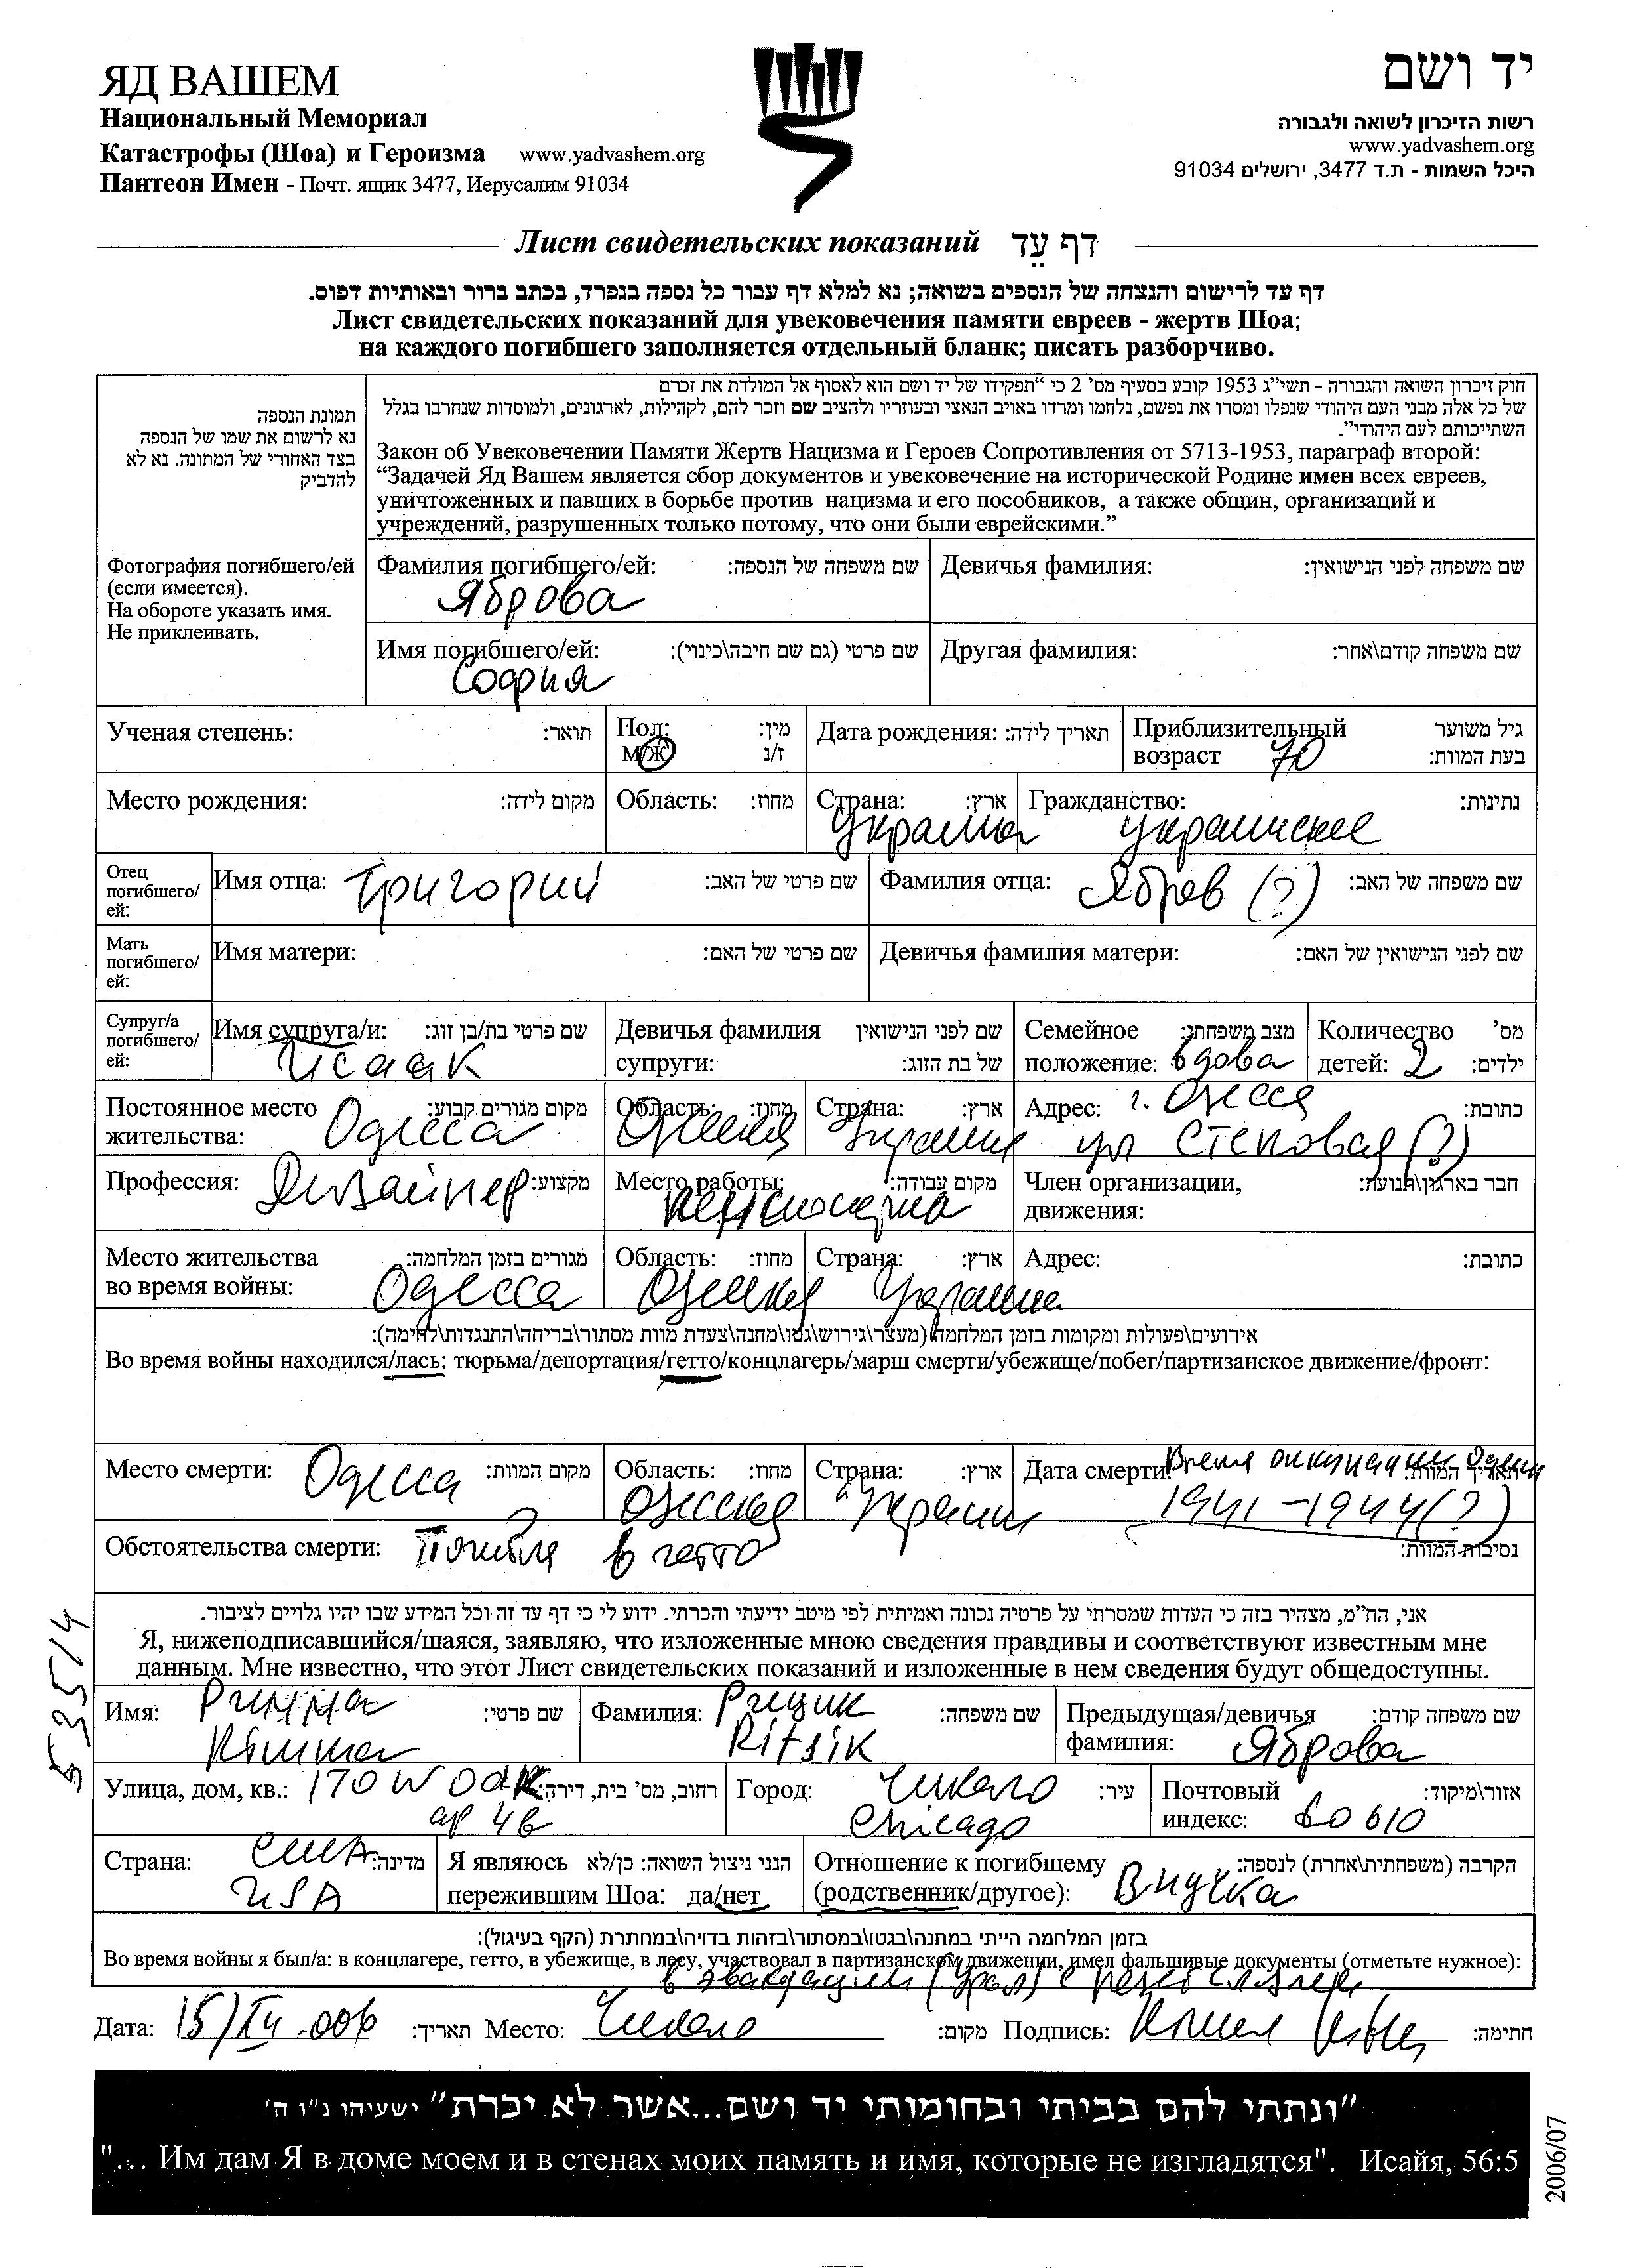 ЯД ВАШЕМ
Национальный Мемориал
Катастрофы (Шоа) и Героизма www.yadvashem.org
Пантеон Имен - Почт. ящик 3477, Иерусалим 91034
יד ושם
רשות הזיכרון לשואה ולגבורה
www.yadvashem.org
היכל השמות - ת.ד 3477, ירושלים 91034
Лист свидетельских показаний דף עֵד
דף עד לרישום והנצחה של הנספים בשואה; נא למלא דף עבור כל נספה בנפרד, בכתב ברור ובאותיות דפוס.
Лист свидетельских показаний для увековечения памяти евреев - жертв Шоа;
на каждого погибшего заполняется отдельный бланк; писать разборчиво.
תמונת הנספה
נא לרשום את שמו של הנספה
בצד האחורי של המתונה. נא לא
להדביק
Фотография погибшего/ей
(если имеется).
На обороте указать имя.
Не приклеивать.
חוק זיכרון השואה והגבורה - תשי"ג 1953 קובע בסעיף מס' 2 כי "תפקידו של יד ושם הוא לאסוף אל המולדת את זכרם
של כל אלה מבני העם היהודי שנפלו ומסרו את נפשם, נלחמו ומרדו באויב הנאצי ובעוזריו ולהציב שם וזכר להם, לקהילות, לארגונים, ולמוסדות שנחרבו בגלל
השתייכותם לעם היהודי".
Закон об Увековечении Памяти Жертв Нацизма и Героев Сопротивления от 5713-1953, параграф второй:
“Задачей Яд Вашем является сбор документов и увековечение на исторической Родине имен всех евреев,
уничтоженных и павших в борьбе против нацизма и его пособников, а также общин, организаций и
учреждений, разрушенных только потому, что они были еврейскими.”
Фамилия погибшего/ей: שם משפחה של הנספה: Девичья фамилия: שם משפחה לפני הנישואין:
Яброва
Имя погибшего/ей: שם פרטי (גם שם חיבה\כינוי): Другая фамилия: שם משפחה קודם\אחר:
София
Ученая степень: תואר: Пол: מין: Дата рождения: תאריך לידה: Приблизительный גיל משוער
м/ж ז/נ возраст 70 בעת המוות:
Место рождения: מקום לידה: Область: מחוז: Страна: ארץ: Гражданство: נתינות:
Украина украинское
Отец
погибшего/
ей:
Имя отца: Григорий שם פרטי של האב: Фамилия отца: Ябров (?) שם משפחה של האב:
Мать
погибшего/
ей:
Имя матери: שם פרטי של האם: Девичья фамилия матери: שם לפני הנישואין של האם:
Супруг/а
погибшего/
ей:
Имя супруга/и: שם פרטי בת/בן זוג: Девичья фамилия שם לפני הנישואין Семейное מצב משפחתי: Количество מס'
Исаак супруги: של בת הזוג: положение: вдова детей: 2 ילדים:
Постоянное место מקום מגורים קבוע: Область: מחוז: Страна: ארץ: Адрес: г. Одесса כתובת:
жительства: Одесса Украина ул Степовая (?)
Профессия: Дизайнер מקצוע: Место работы: מקום עבודה: Член организации, חבר בארגון\תנועה:
пенсионерка движения:
Место жительства מגורים בזמן המלחמה: Область: מחוז: Страна: ארץ: Адрес: כתובת:
во время войны: Одесса Украина
אירועים\פעולות ומקומות בזמן המלחמה (מעצר\גירוש\גטו\מחנה\צעדת מוות מסתור\בריחה\התנגדות\לחימה):
Во время войны находился/лась: тюрьма/депортация/гетто/концлагерь/марш смерти/убежище/побег/партизанское движение/фронт:
Место смерти: Одесса מקום המוות: Область: מחוז: Страна: ארץ: Дата смерти: Время оккупации Одессы תאריך המוות:
Украина 1941-1944 (?)
Обстоятельства смерти: Погибла в гетто נסיבות המוות:
אני, הח"מ, מצהיר בזה כי העדות שמסרתי על פרטיה נכונה ואמיתית לפי מיטב ידיעתי והכרתי. ידוע לי כי דף עד זה וכל המידע שבו יהיו גלויים לציבור.
Я, нижеподписавшийся/шаяся, заявляю, что изложенные мною сведения правдивы и соответствуют известным мне
данным. Мне известно, что этот Лист свидетельских показаний и изложенные в нем сведения будут общедоступны.
Имя: Римма שם פרטי: Фамилия: Рицик שם משפחה: Предыдущая/девичья שם משפחה קודם:
Rimma Ritsik фамилия: Яброва
Улица, дом, кв.: 170 W Oak רחוב, מס' בית, דירה: Город: Чикаго עיר: Почтовый אזור\מיקוד:
ap 4b Chicago индекс: 60610
Страна: США מדינה: Я являюсь הנני ניצול השואה: כן/לא Отношение к погибшему הקרבה (משפחתית\אחרת) לנספה:
USA пережившим Шоа: да/нет (родственник/другое): Внучка
בזמן המלחמה הייתי במחנה\בגטו\במסתור\בזהות בדויה\במחתרת (הקף בעיגול):
Во время войны я был/а: в концлагере, гетто, в убежище, в лесу, участвовал в партизанском движении, имел фальшивые документы (отметьте нужное):
в эвакуации (Урал) с
Дата: 15/IV-006 תאריך: Место: Чикаго מקום: Подпись: חתימה:
"ונתתי להם בביתי ובחומותי יד ושם...אשר לא יכרת" ישעיהו נ"ו ה'
"... Им дам Я в доме моем и в стенах моих память и имя, которые не изгладятся". Исайя, 56:5
53514
2006/07